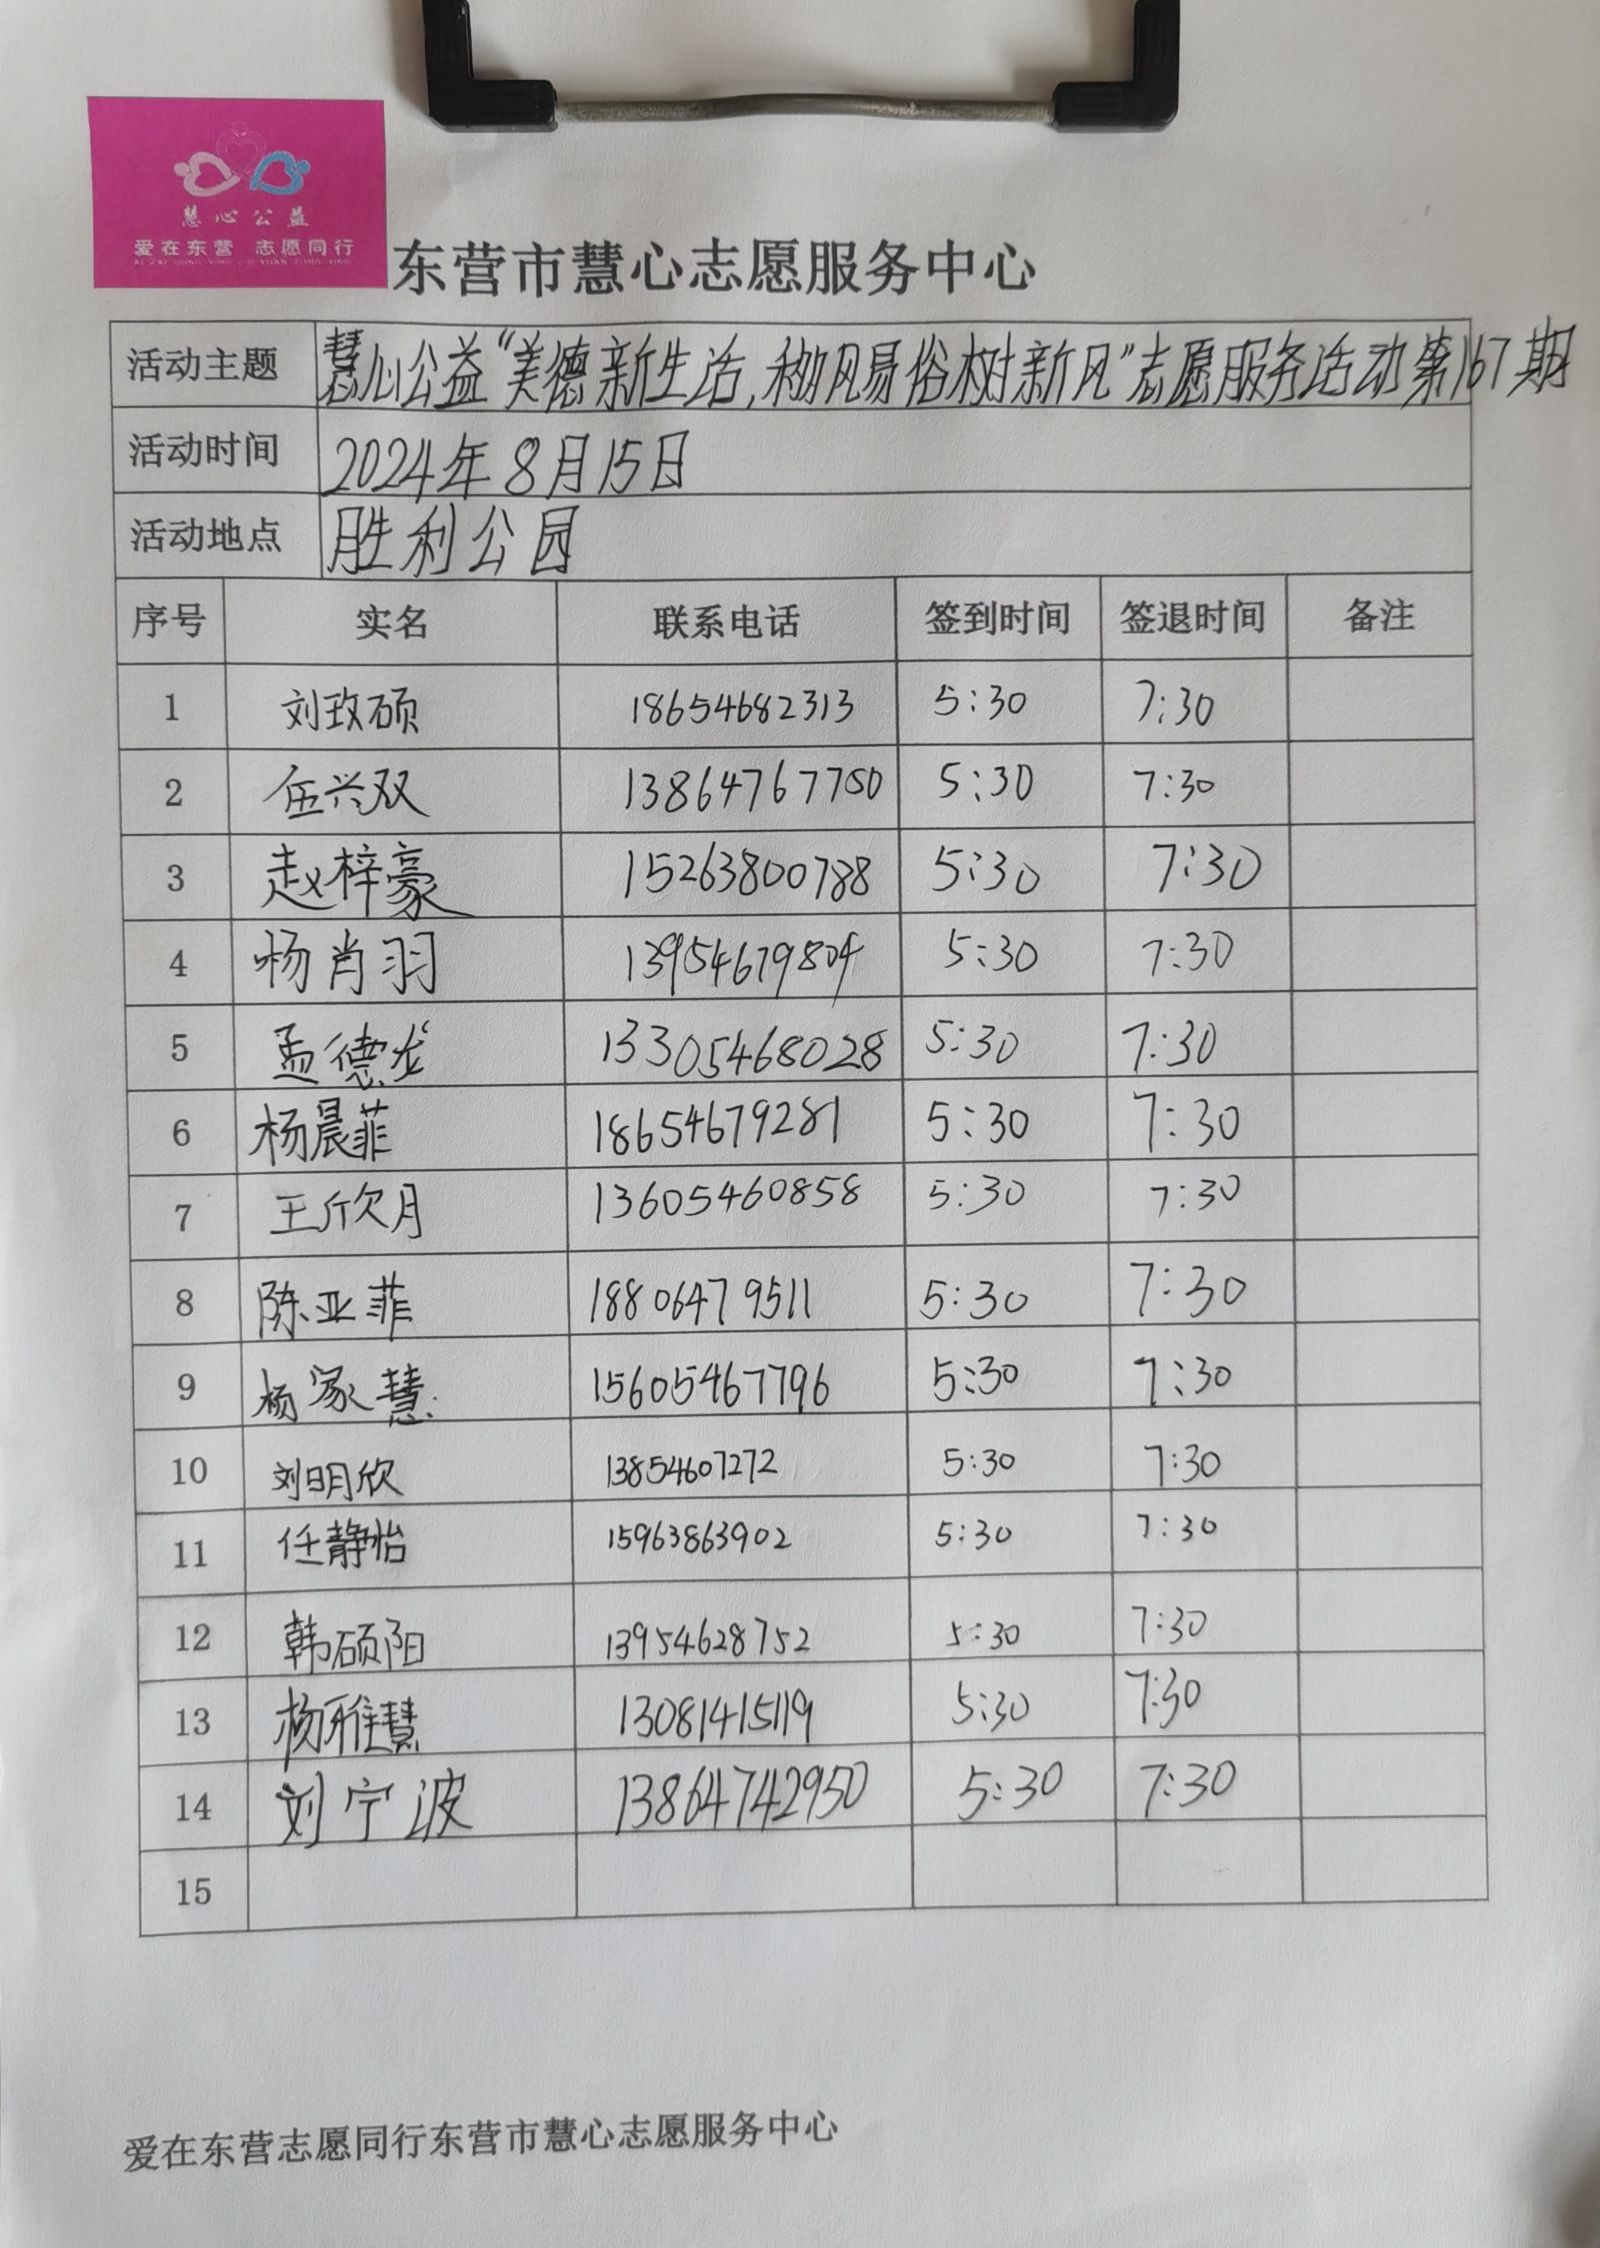 慧心公益
爱在东营 志愿同行
东营市慧心志愿服务中心
活动主题 慧心公益“美德新生活,移风易俗树新风”志愿服务活动第167期
活动时间 2024年8月15日
活动地点 胜利公园
序号 实名 联系电话 签到时间 签退时间 备注
1 刘玫硕 18654682313 5:30 7:30
2 伍兴双 13864767750 5:30 7:30
3 赵梓豪 15263800788 5:30 7:30
4 杨肖羽 13954679804 5:30 7:30
5 孟德龙 13305468028 5:30 7:30
6 杨晨菲 18654679281 5:30 7:30
7 王欣月 13605460858 5:30 7:30
8 陈亚菲 18806479511 5:30 7:30
9 杨家慧 15605467796 5:30 7:30
10 刘明欣 13854607272 5:30 7:30
11 任静怡 15963863902 5:30 7:30
12 韩硕阳 13954628752 5:30 7:30
13 杨雅慧 13081415119 5:30 7:30
14 刘宁波 13864742950 5:30 7:30
15
爱在东营志愿同行东营市慧心志愿服务中心